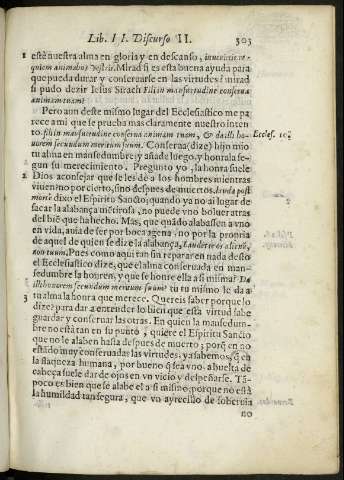 Lib. II. Discurso II. 303
1 estè nuestra alma en gloria y en descanso, inuenietis re-
quiem animabus vestris. Mirad si es esta buena ayuda para
que pueda durar y conseruarse en las virtudes? mirad
si pudo dezir Iesus Sirach Fili in mansuetudine conserua
animam tuam?
Pero aun deste mismo lugar del Ecclesiastico me pa
rece ami que se prueba mas claramente nuestro inten-
to. fili in mansuetudine conserua animam tuam, & da illi ho- Eccles. 10.
norem secundum meritum suum. Conserua (dize) hijo mio
tu alma en mansedumbre; y añade luego, y honrala se-
gun su merecimiento. Pregunto yo, la honra suele
2 Dios aconsejar que se les dè a los hombres mientras
viuen? no por cierto, sino despues de muertos, lauda post
mortē dixo el Espiritu Sancto; quando ya no ai lugar de
sacar la alabança mētirosa, no puede vno boluer atras
del biē que ha hecho. Mas, que quãdo alabassen a vno
en vida, auia de ser por boca agena, no por la propria
de aquel de quien se dize la alabança, Laudet te os alienū,
non tuum. Pues como aqui tan sin reparar en nada desto
el Ecclesiastico dize, que el alma conseruada en man-
sedumbre la honren, y que se honre ella a si misma? Da
illi honorem secundum meritum suum? tu tu mismo le da a
3 tu alma la honra que merece. Quereis saber porque lo
dize? para dar a entender lo biē que esta virtud sabe
guardar y conseruar las otras. En quien la mansedum-
bre no està tan en su punto, quiere el Espiritu Sancto
que no le alaben hasta despues de muerto; porq̃ en no
estādo muy conseruadas las virtudes, ya sabemos, q̃ en
la flaqueza humana, por bueno q̃ sea vno a buelta de
cabeça suele dar de ojos en vn vicio y despeñarse. Tã-
poco es bien que se alabe el a si mismo; porque no està
la humildad tan segura, que vn ayrecillo de soberuia
no